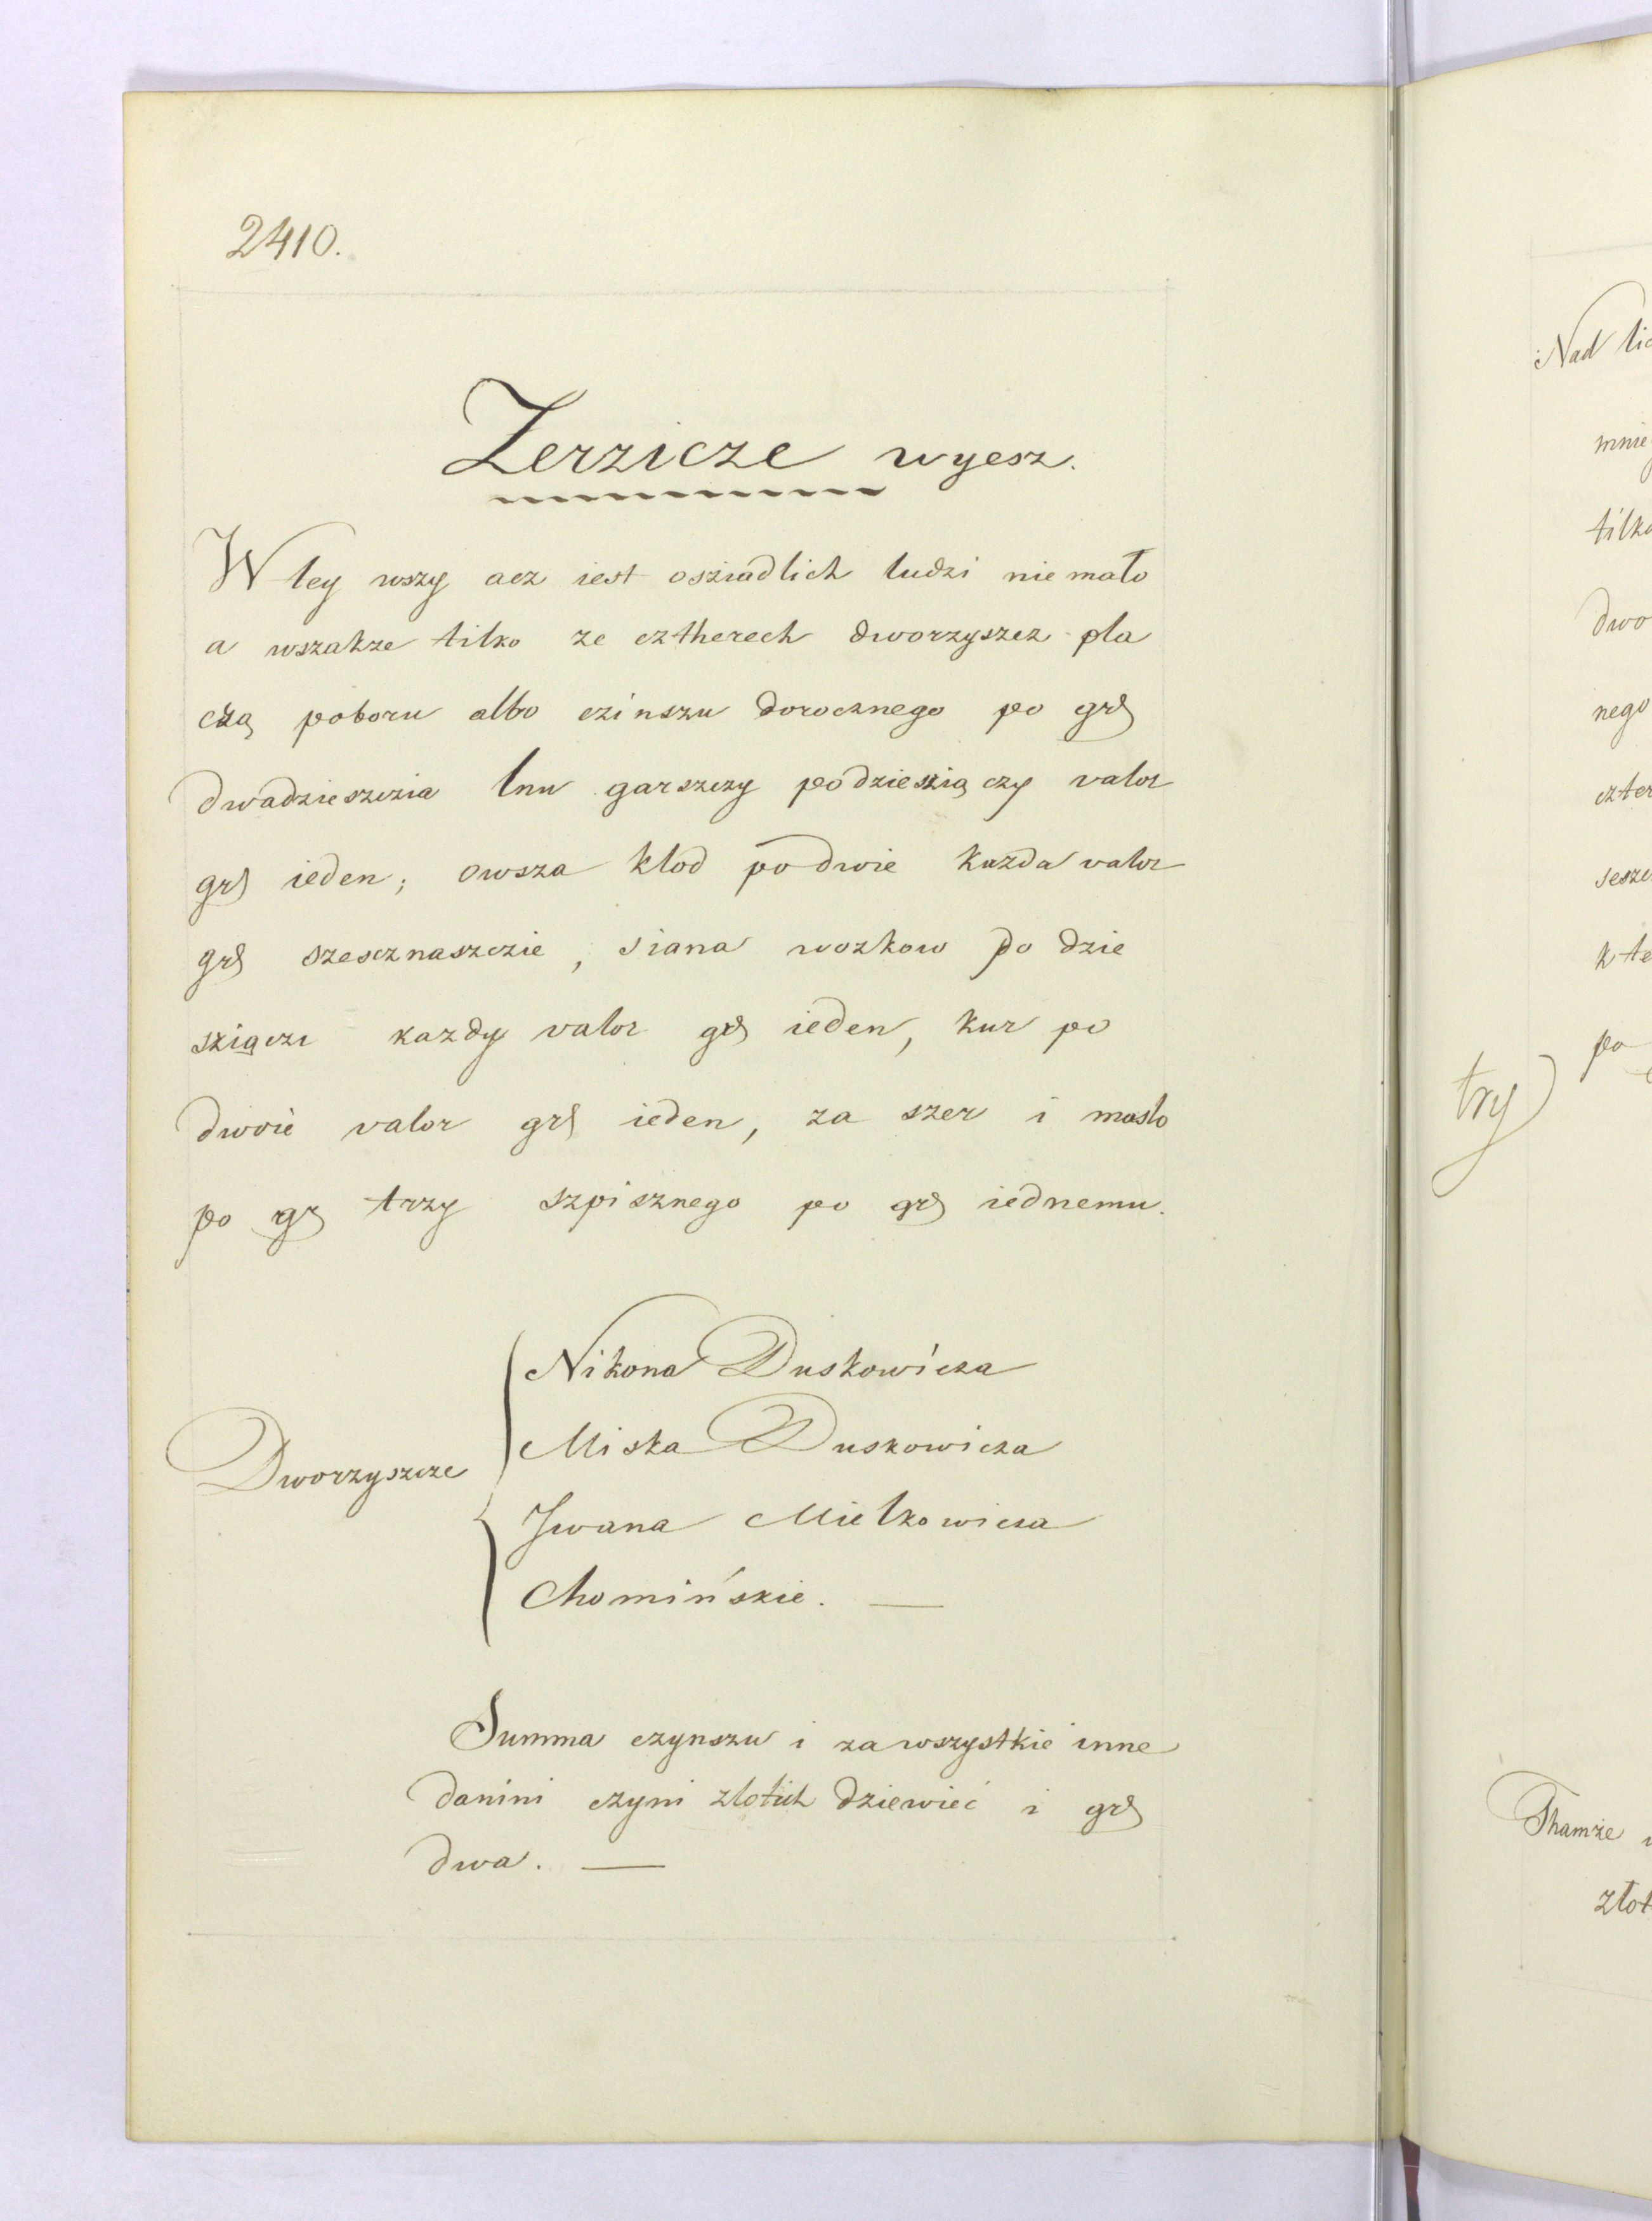 2410.
Zerzicze wyesz.
W tey wszy acz iest osziadlich ludzi nie mało
a wszakze tilko ze cztherech dworzyszcz pla
czą poboru albo czinszu dorocznego po grs
dwadzieszczia lnu garszczy po dziesziączy valor
grs ieden; owsza klod po dwie kazda valor
grs szescznaszczie, siana wozkow po dzie
sziączi kazdy valor grs ieden, kur po
dwoie valor grs ieden, za szer i maslo
po gr trzy szpisznego po grs iednemu.
Nikona Duskowicza
Miska Duskowicza
Dworzyszcze
Jwana Mielkowicza
Chomińskie. —
Summa czynszu i za wszystkie inne
danini czyni zlotich dziewieć i grs
dwa. —
Nad
tilko
nego
try
po
Thamze